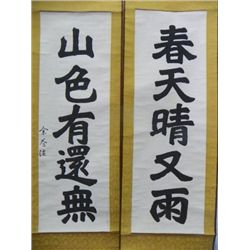 春天晴又雨
山色有還無